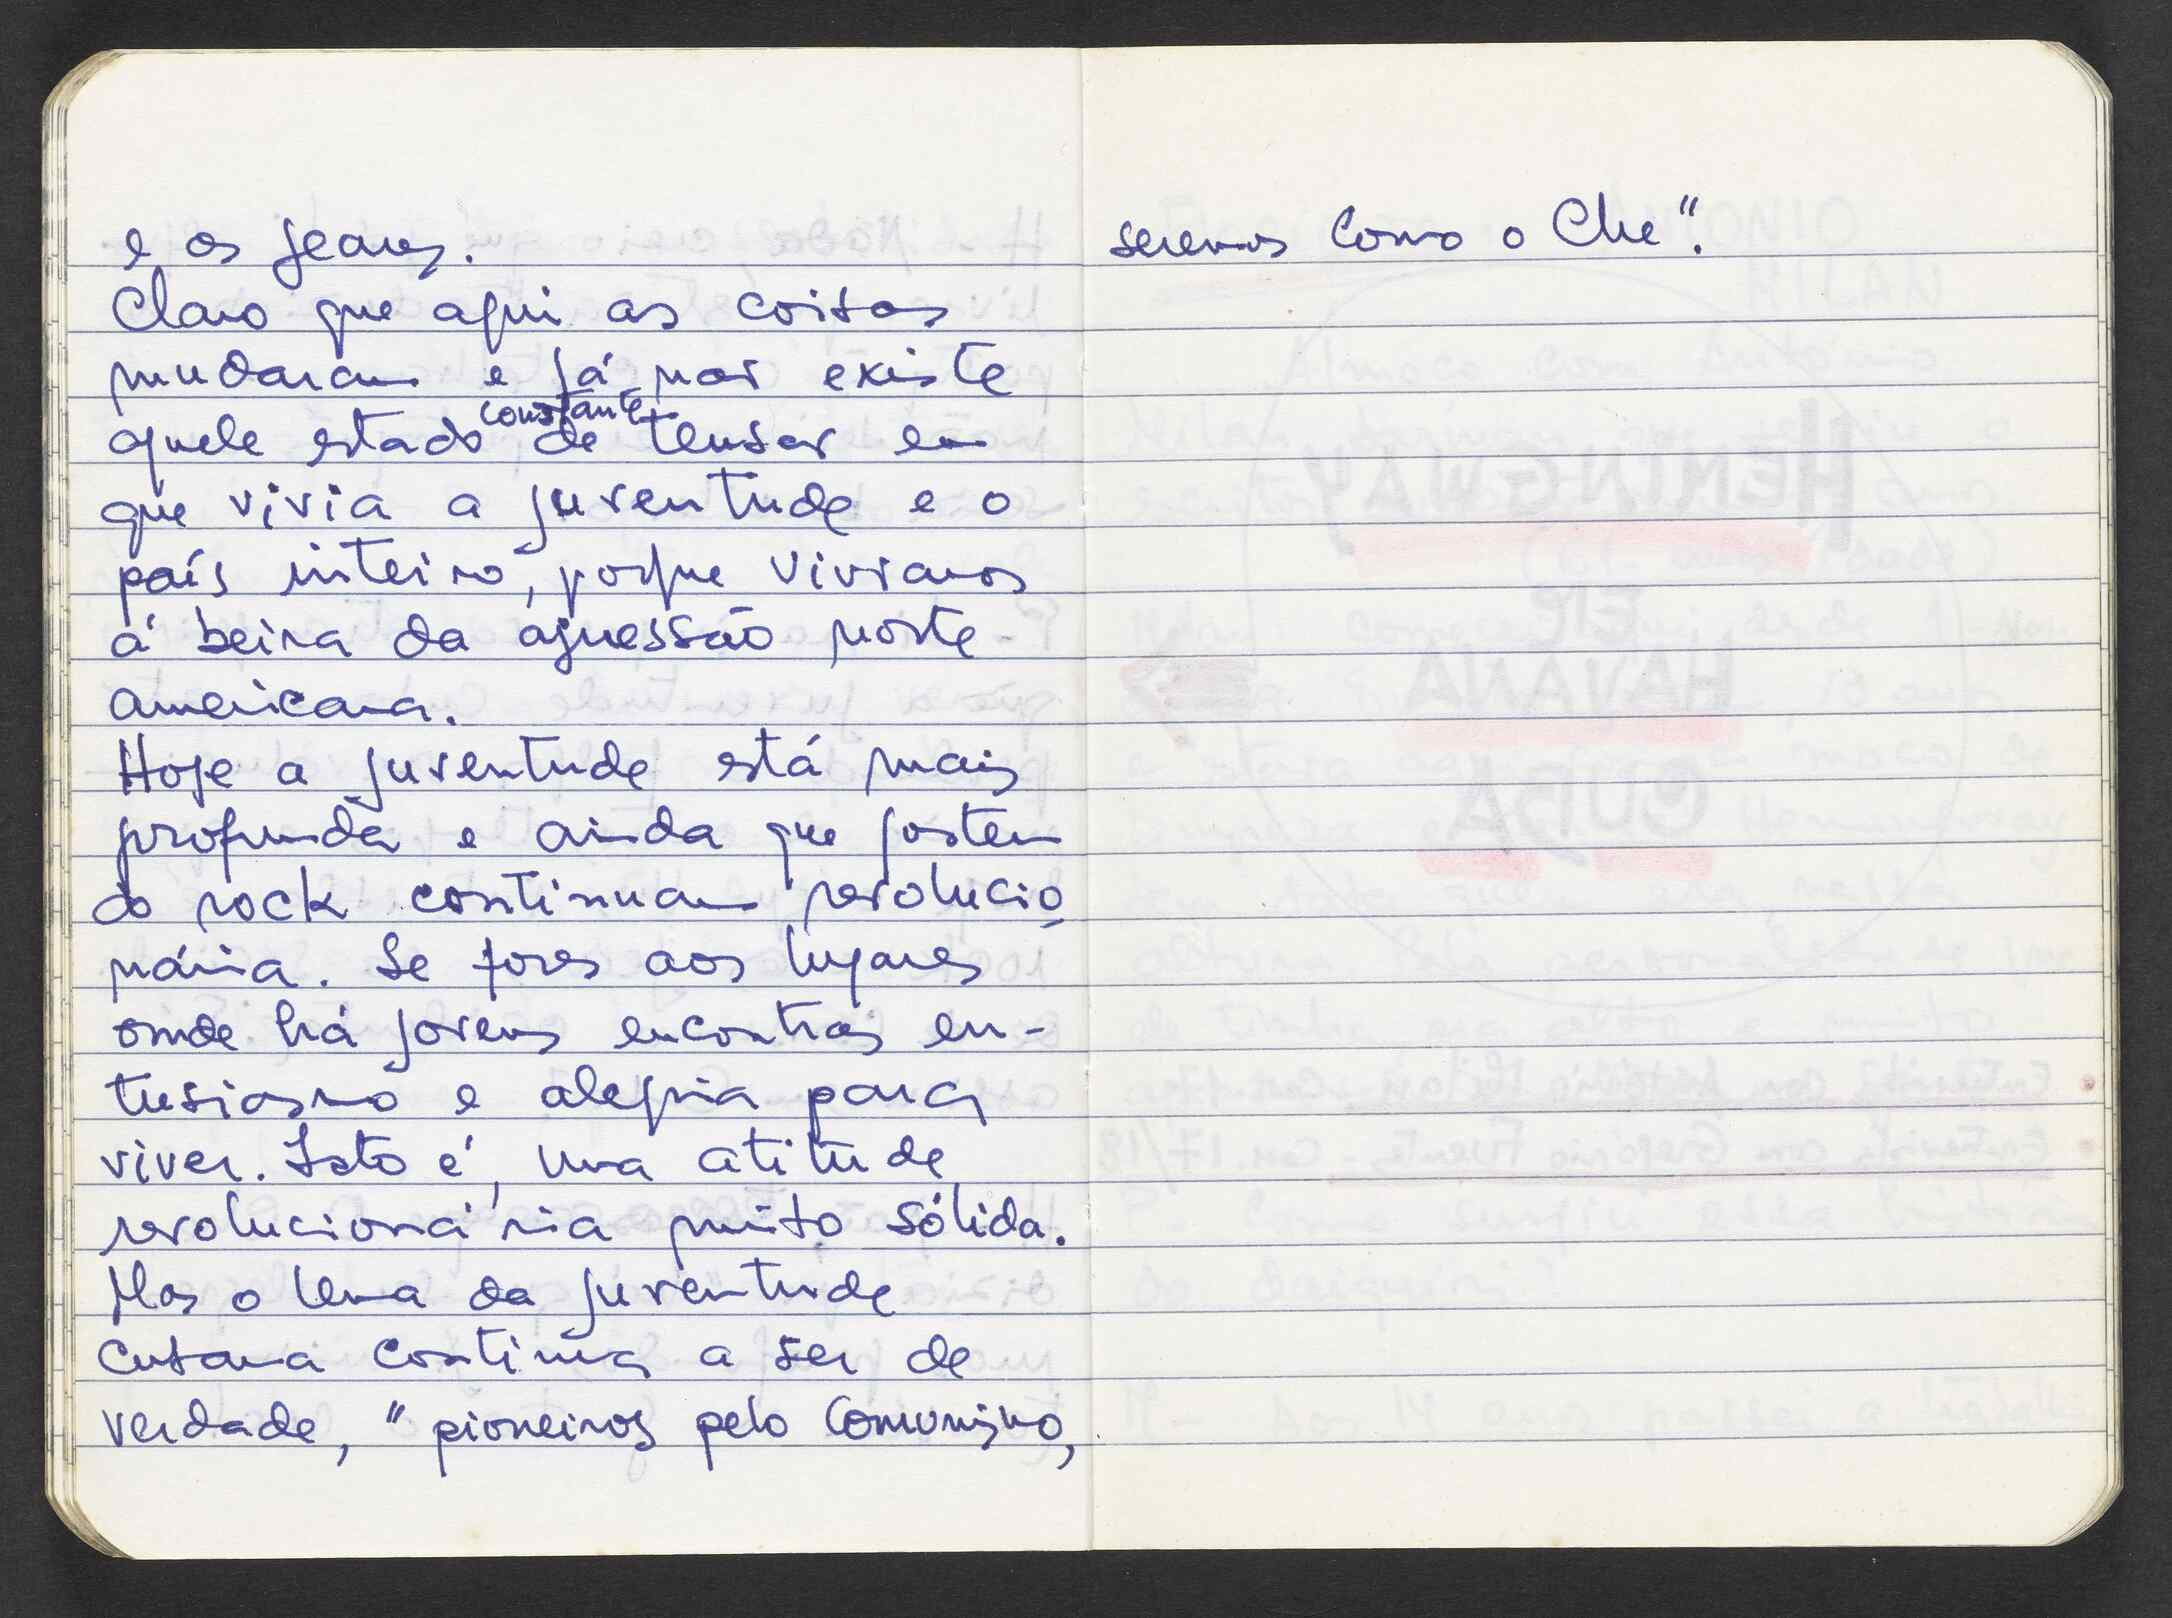 e os jeans.
Claro que aqui as coisas
mudaram e já não existe
aquele estado constante de tensão em
que vivia a juventude e o
país inteiro, porque viviamos
á beira da agressão norte-
americana.
Hoje a juventude está mais
profunda e ainda que gostem
do rock continuam revolucio
nária. Se fores aos lugares
onde há jovens encontras en-
tusiasmo e alegria para
viver. Isto é, uma atitude
revolucionária muito sólida.
Mas o lema da juventude
cubana continua a ser de
verdade, "pioneiros pelo Comunismo,
seremos como o Che".
HEMINGWAY
EM
HAVANA
CUBA